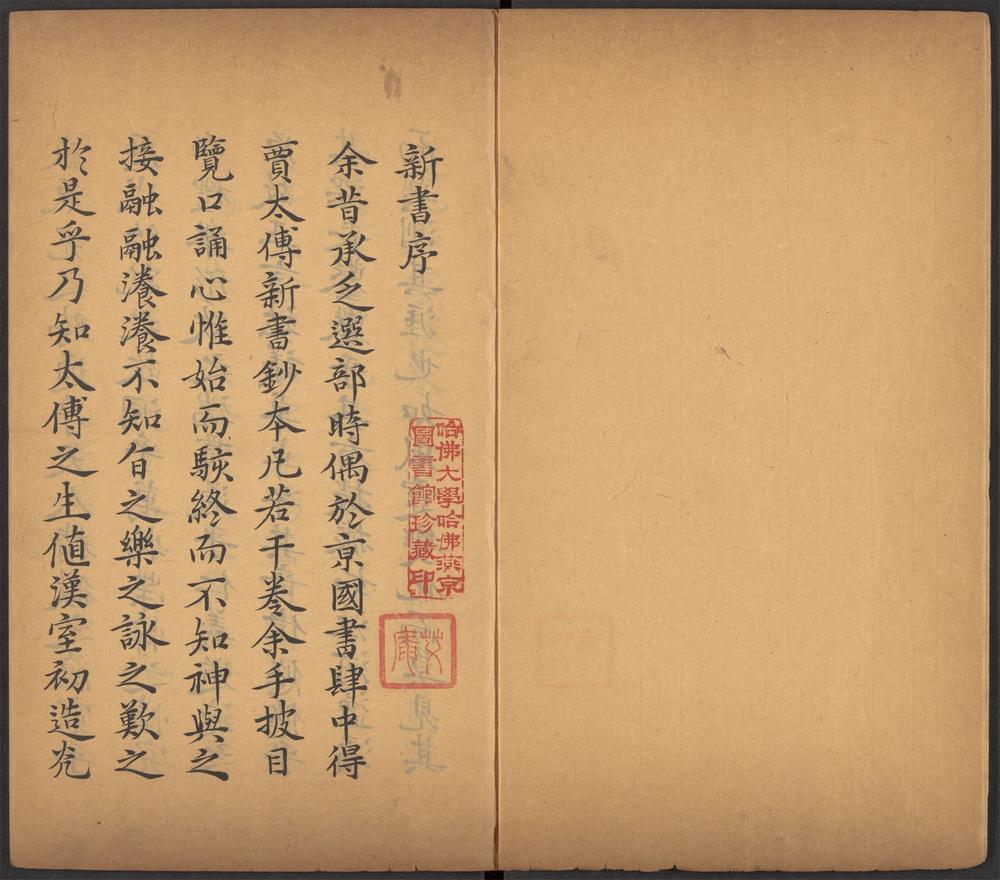 新書序
余昔承乏選部時偶於京國書肆中得
賈太傅新書鈔本凡若干卷余手披目
覽口誦心惟始而駭終而不知神與之
接融融瀁瀁不知旨之樂之詠之歎之
於是乎乃知太傅之生值漢室初造光
哈佛大學哈佛燕京
圖書館珍藏印